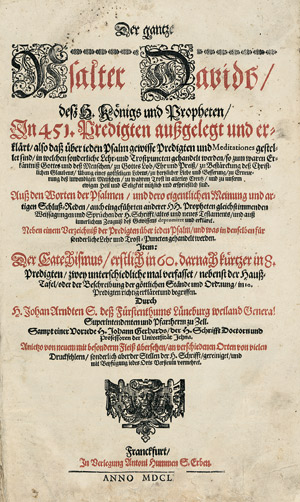 Der gantze
Psalter Davids/
deß H. Königs und Propheten/
In 451. Predigten außgelegt und er-
klärt/ also daß über jeden Psalm gewisse Predigten und Meditationes gestel-
let sind/ in welchen sonderliche Lehr- und Trostpuncten gehandelt werden/ so zum waren Er-
käntniß Gottes und deß Menschen/ zu Gottes Lob/ Ehr und Preiß/ zu Bestärckung deß Christ-
lichen Glaubens/ Übung eines gottseligen Lebens/ zu herrlicher Liebe und Besserung/ zu Erneue-
rung deß inwendigen Menschen/ zu wahrem Trost in allerley Creutz/ und zu unserm
ewigen Heil und Seligkeit nützlich und ersprießlich sind.
Auß den Worten der Psalmen/ und dero eigentlichen Meinung und ar-
tigen Schluß-Reden/ auch eingeführten anderer HH. Propheten gleichstimmenden
Weissagungen und Sprüchen der H. Schrifft/ altes und neues Testaments/ und auß
innerlichem Zeugniß deß Gewissens
Neben einem Verzeichniß der Predigten über jeden Psalm/ und was in denselben für
sonderliche Lehr- und Trost-Puncten gehandelt werden.
Item:
Der Catechismus/ erstlich in 60. darnach kürtzer in 8.
Predigten/ zwey unterschiedliche mal verfasset/ nebenst der Hauß-
Tafel/ oder der Beschreibung der göttlichen Stände und Ordnung/ in 10.
Predigten richtig erkläret und begriffen.
Durch
H. Johan Arndten S. deß Fürstenthums Lüneburg weiland General
Superintendenten und Pfarherrn zu Zell.
Sampt einer Vorrede H. Johann Gerhards/ der H. Schrifft Doctorn und
Professorn der Universität Jehna.
Anietzo von neuem mit besonderm Fleiß übersehen/ an verschiedenen Orten von vielen
Druckfehlern/ sonderlich aber der Stellen der H. Schrifft/ gereiniget/ und
mit Beyfügung jedes Orts Versiculn vermehret.
Franckfurt/
In Verlegung Antonii Hummen S. Erben.
ANNO MDCL